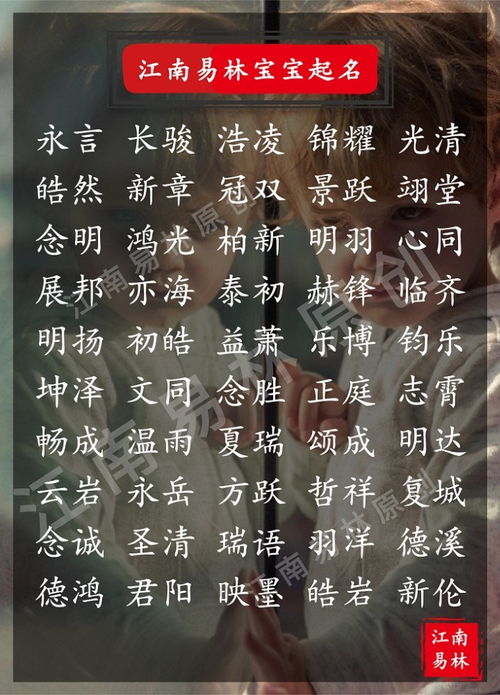 江南易林宝宝起名
永言 长骏 浩凌 锦耀 光清
皓然 新章 冠双 景跃 翊堂
念明 鸿光 柏新 明羽 心同
展邦 亦海 泰初 赫锋 临齐
明扬 初皓 益萧 乐博 钧乐
坤泽 文同 念胜 正庭 志霄
畅成 温雨 夏瑞 颂成 明达
云岩 永岳 方跃 哲祥 复城
念诚 圣清 瑞语 羽洋 德溪
德鸿 君阳 映墨 皓岩 新伦
江南易林原创
江南易林原创
江南易林原创
江南
易林